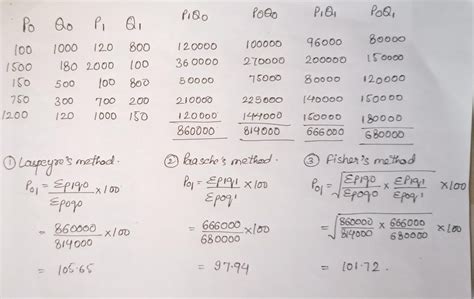 P0 Q0 P1 Q1 P1Q0 P0Q0 P1Q1 P0Q1
100 1000 120 800 120000 100000 96000 80000
1500 180 2000 100 360000 270000 200000 150000
150 500 100 800 50000 75000 80000 120000
750 300 700 200 210000 225000 140000 150000
1200 120 1000 150 120000 144000 150000 180000
860000 814000 666000 680000
① Laspeyre's method.
P01 = Σp1q0/Σp0q0 ×100
= 860000/814000 ×100
= 105.65
② Paasche's method.
P01 = Σp1q1/Σp0q1 ×100
= 666000/680000 ×100
= 97.94
③ Fisher's method
P01 = √(Σp1q0/Σp0q0 × Σp1q1/Σp0q1) ×100
= √(860000/814000 × 666000/680000) ×100
= 101.72